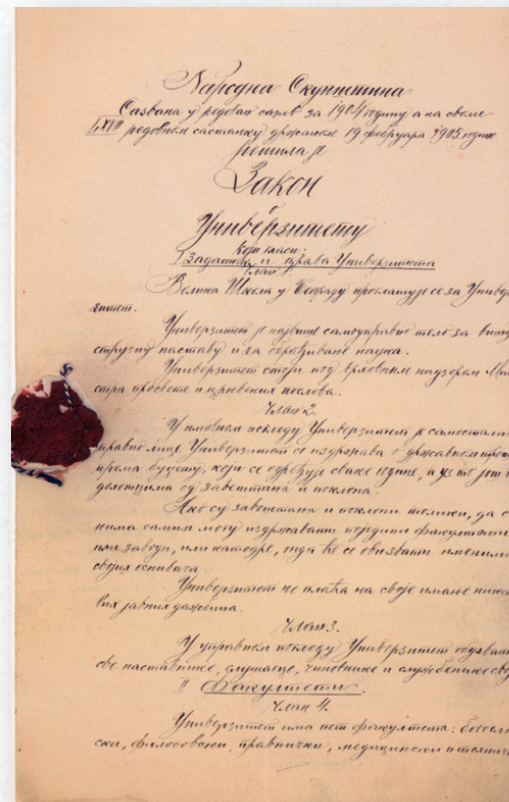 Народна Скупштина
Сазвана у редован сазив за 1904 годину а на своме
LXVII редовном састанку држаном 19 фебруара 1905 године
решила је
Закон
о
Универзитету
који гласи:
I Задатак и права Универзитета
Члан 1.
Велика Школа у Београду проглашује се за Универ
зитет.
Универзитет је највише самоуправно тело за вишу
стручну наставу и за обрађивање наука.
Универзитет стоји под врховним надзором Мини
стра просвете и црквених послова.
Члан 2.
У имовном погледу Универзитет је самостално
правно лице. Универзитет се издржава о државном трошку
према буџету, који се одређује сваке године, а уз то још и
дохоцима од завештања и поклона.
Ако су завештања и поклони толики, да се
њима самим могу издржавати поједини факултети
или заводи, или катедре, онда ће се они звати именима
својих оснивача.
Универзитет не плаћа на своје имање ника
квих јавних дажбина.
Члан 3.
У управном погледу Универзитет обухвата
све наставнике, слушаоце, чиновнике и служитеље
II Факултети.
Члан 4.
Универзитет има пет факултета: богослов
ски, философски, правнички, медицински и технички